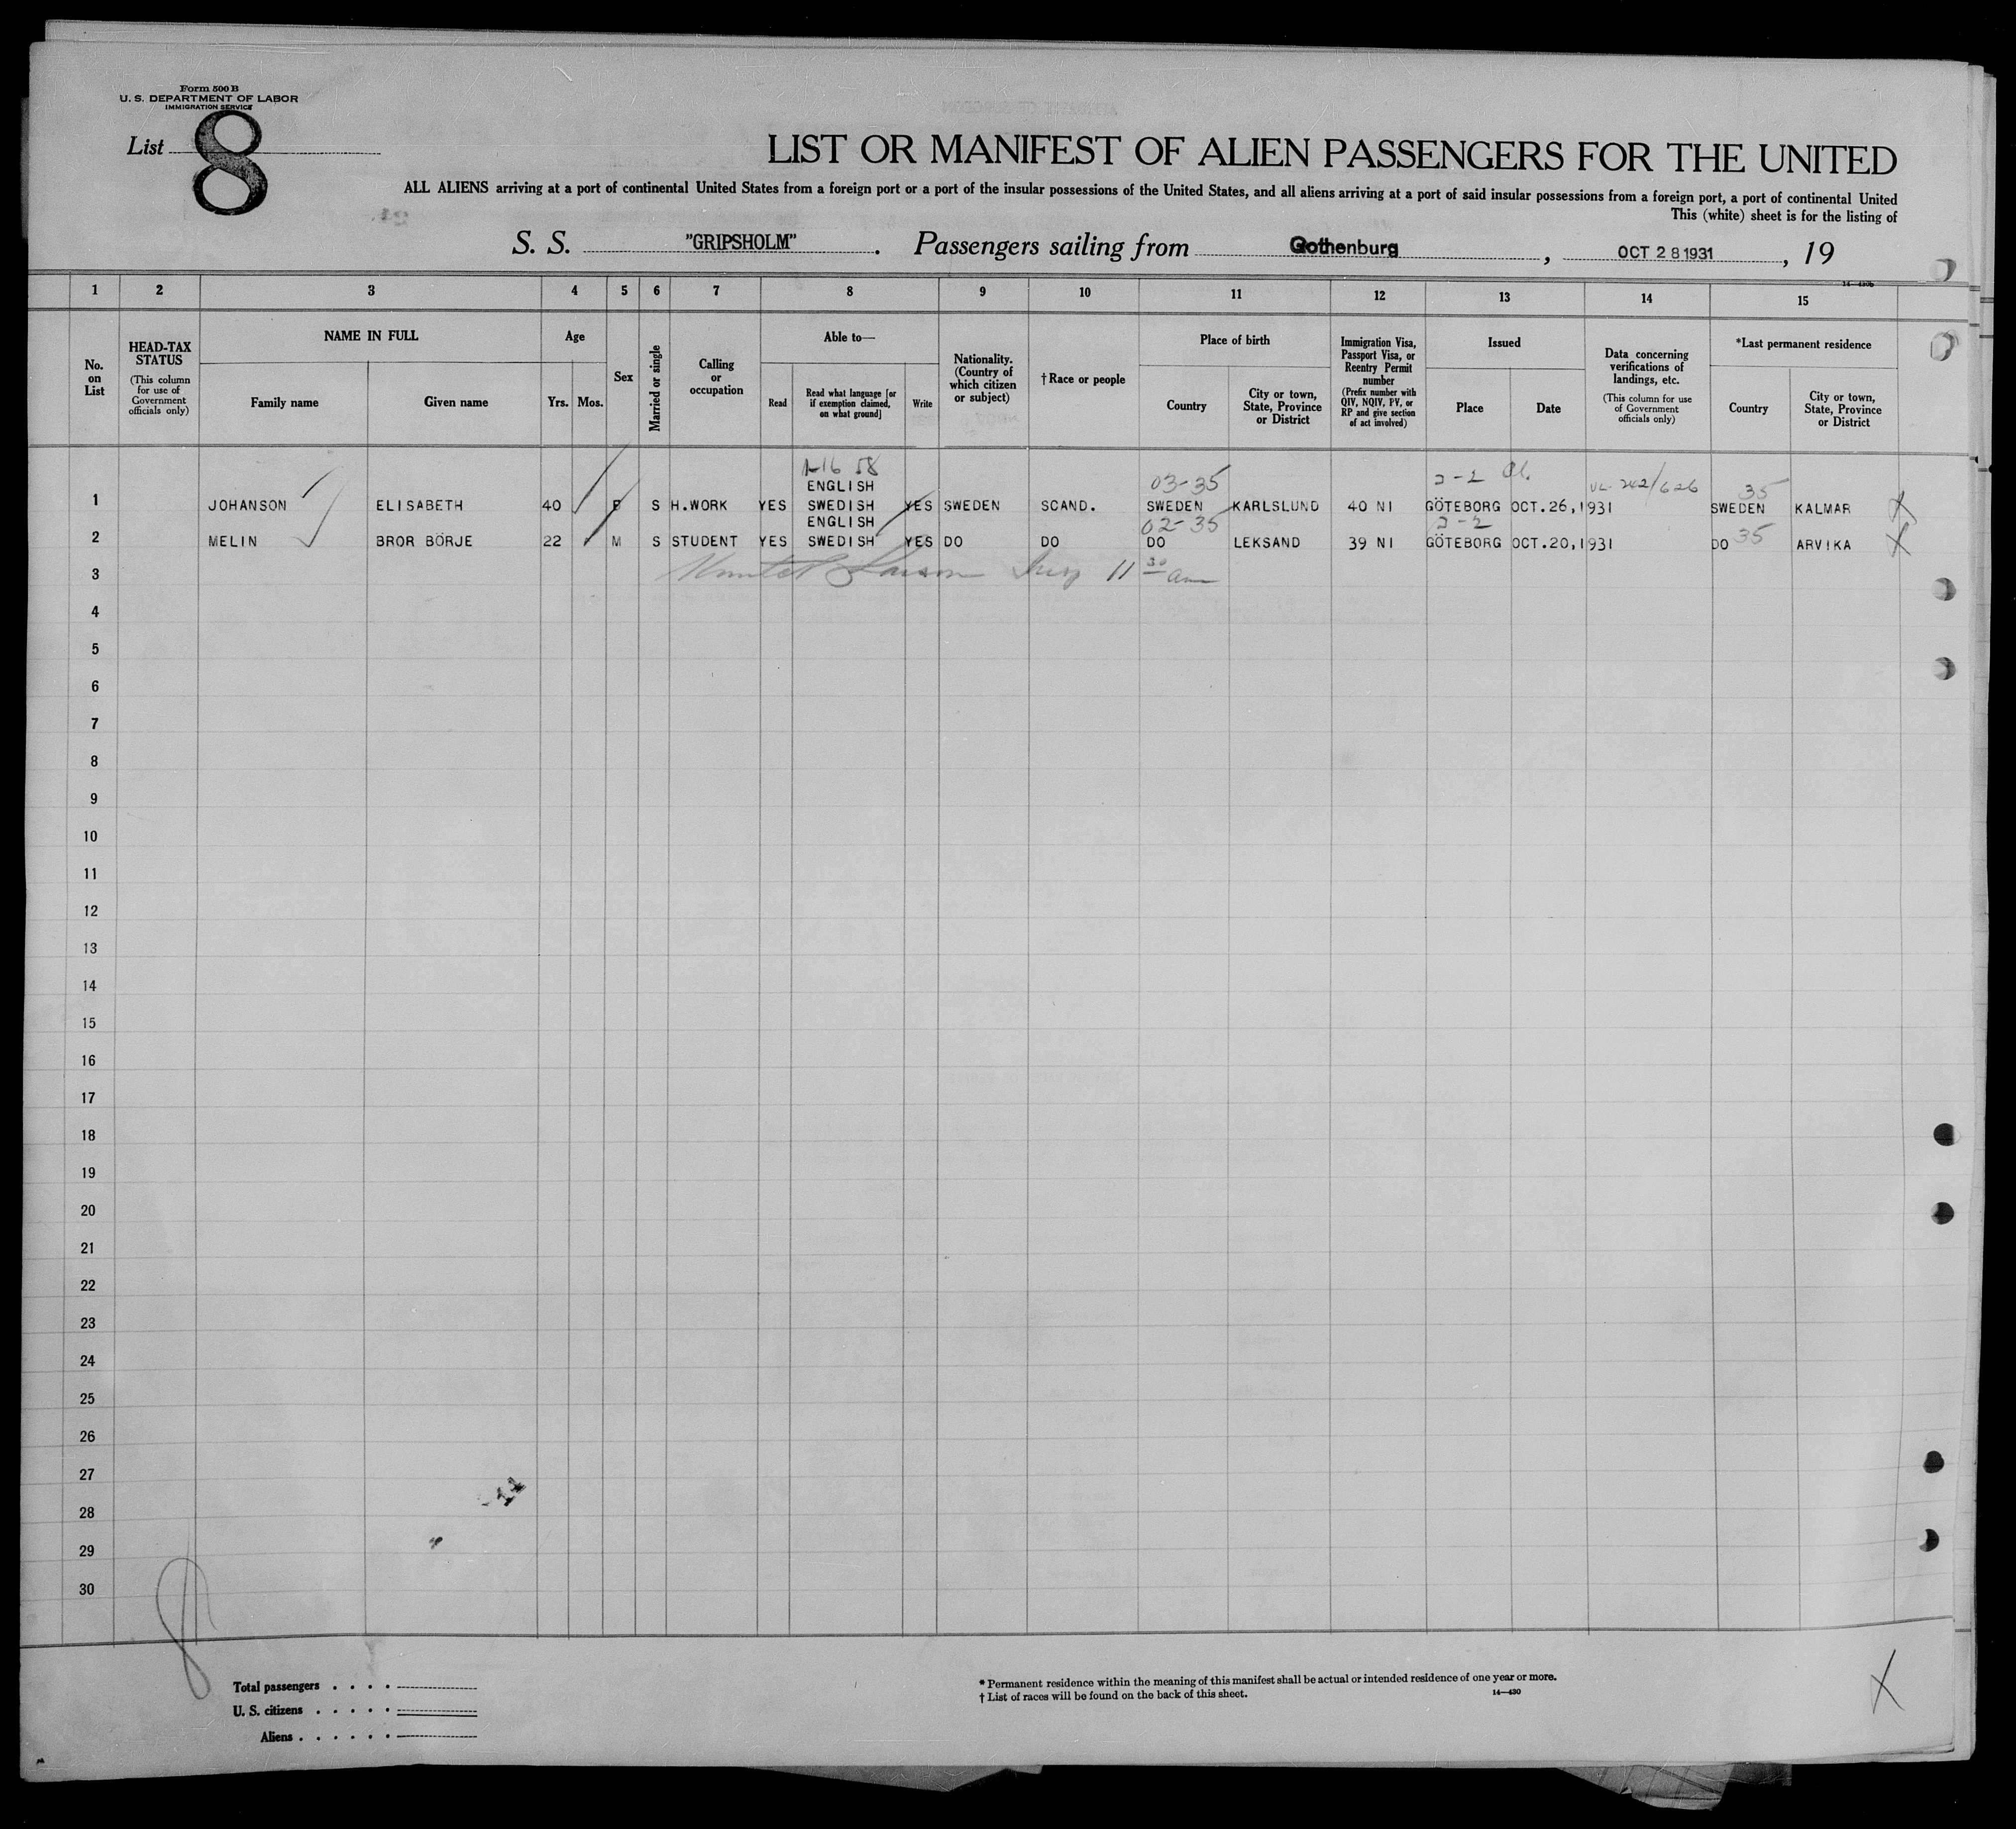 Form 500 B
U. S. DEPARTMENT OF LABOR
IMMIGRATION SERVICE
List 8
LIST OR MANIFEST OF ALIEN PASSENGERS FOR THE UNITED
ALL ALIENS arriving at a port of continental United States from a foreign port or a port of the insular possessions of the United States, and all aliens arriving at a port of said insular possessions from a foreign port, a port of continental United
This (white) sheet is for the listing of
S. S. "GRIPSHOLM". Passengers sailing from Gothenburg, OCT 28 1931, 19
14—430b
1 2 3 4 5 6 7 8 9 10 11 12 13 14 15
No. on List
HEAD-TAX STATUS
(This column for use of Government officials only)
NAME IN FULL
Family name
Given name
Age
Yrs. Mos.
Sex
Married or single
Calling or occupation
Able to—
Read
Read what language [or if exemption claimed, on what ground]
Write
Nationality. (Country of which citizen or subject)
† Race or people
Place of birth
Country
City or town, State, Province or District
Immigration Visa, Passport Visa, or Reentry Permit number
(Prefix number with QIV, NQIV, PV, or RP and give section of act involved)
Issued
Place
Date
Data concerning verifications of landings, etc.
(This column for use of Government officials only)
*Last permanent residence
Country
City or town, State, Province or District
1-16 58
ENGLISH 03-35 2-2 35
1 JOHANSON ELISABETH 40 F S H.WORK YES SWEDISH YES SWEDEN SCAND. SWEDEN KARLSLUND 40 NI GÖTEBORG OCT.26,1931 SWEDEN KALMAR X
ENGLISH 02-35 2-2
2 MELIN BROR BÖRJE 22 M S STUDENT YES SWEDISH YES DO DO DO LEKSAND 39 NI GÖTEBORG OCT.20,1931 DO 35 ARVIKA X
3 11 30 am
4
5
6
7
8
9
10
11
12
13
14
15
16
17
18
19
20
21
22
23
24
25
26
27
28
29
30
8
X
Total passengers . . . .
U. S. citizens . . . . .
Aliens . . . . . .
* Permanent residence within the meaning of this manifest shall be actual or intended residence of one year or more.
† List of races will be found on the back of this sheet.
14—430